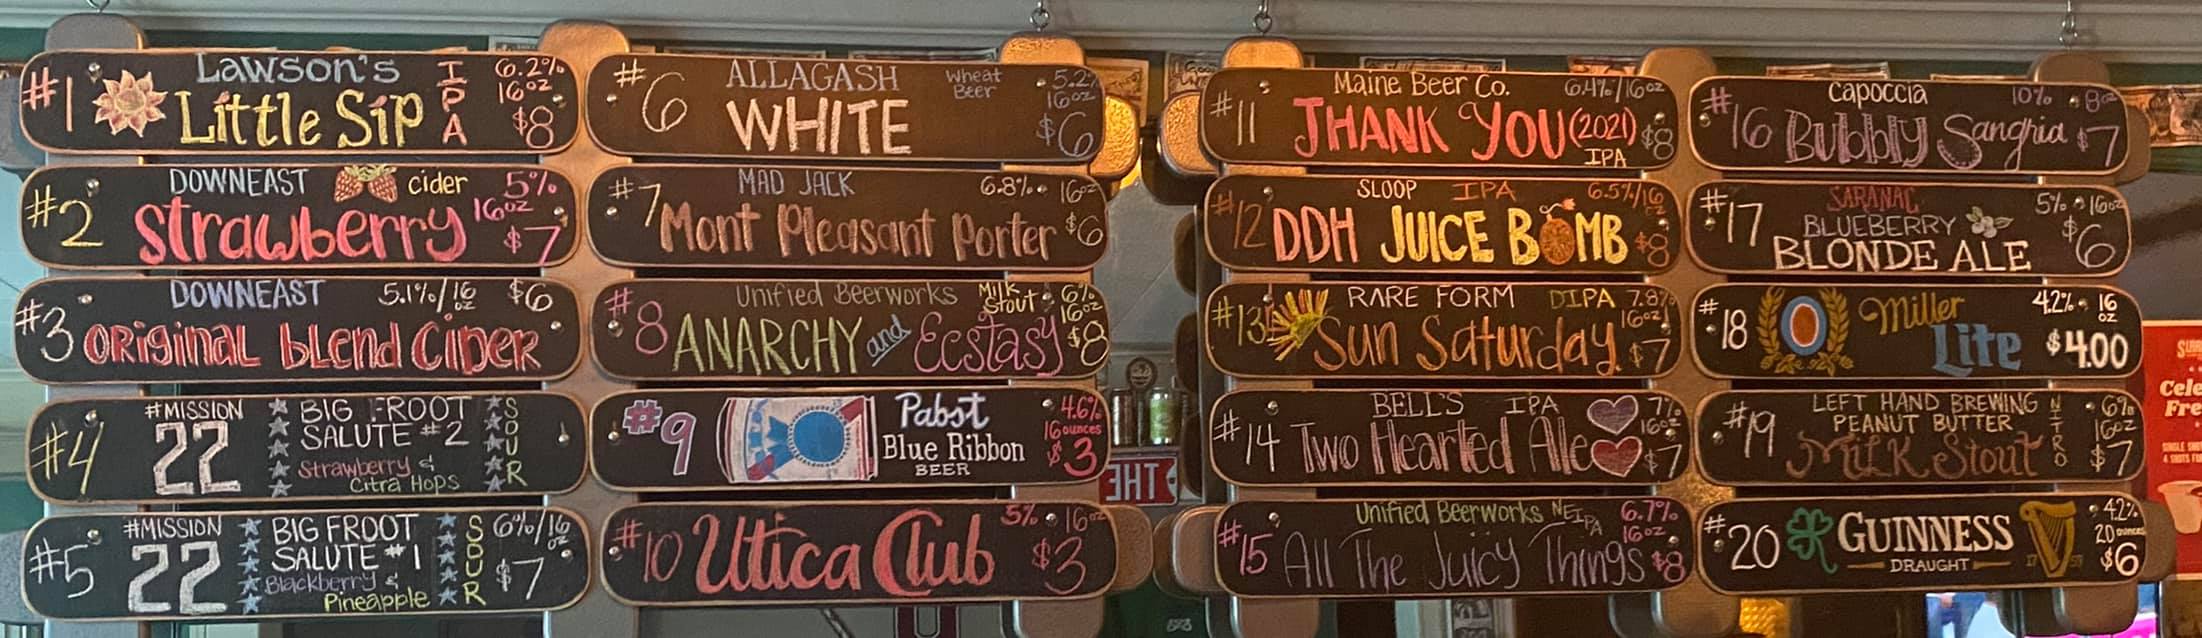 #1 Lawson's IPA 6.2% 16oz
Little Sip $8
#2 DOWNEAST cider 5% 16oz
Strawberry $7
#3 DOWNEAST 5.1%/16oz $6
ORiginal blend CiDer
#4 #MISSION 22 BIG FROOT SOUR
SALUTE #2
Strawberry &
Citra Hops
#5 #MISSION 22 BIG FROOT SOUR 6%/16oz
SALUTE #1 $7
Blackberry &
Pineapple
#6 ALLAGASH Wheat Beer 5.2% 16oz
WHITE $6
#7 MAD JACK 6.8% 16oz
Mont Pleasant Porter $6
#8 Unified Beerworks Milk Stout 6% 16oz
ANARCHY and Ecstasy $8
#9 Pabst 4.6%
Blue Ribbon 16 ounces
BEER $3
#10 Utica Club 5% 16oz
$3
#11 Maine Beer Co. 6.4%/16oz
THANK YOU (2021) $8
IPA
#12 SLOOP IPA 6.5%/16oz
DDH JUICE BOMB $8
#13 RARE FORM DIPA 7.8% 16oz
Sun Saturday $7
#14 BELL'S IPA 7% 16oz
Two Hearted Ale $7
#15 Unified Beerworks NEIPA 6.7% 16oz
All The Juicy Things $8
#16 Capoccia 10% 8oz
Bubbly Sangria $7
#17 SARANAC 5% 16oz
BLUEBERRY $6
BLONDE ALE
#18 Miller 4.2% 16oz
Lite $4.00
#19 LEFT HAND BREWING NITRO 6% 16oz
PEANUT BUTTER $7
Milk Stout
#20 GUINNESS 4.2% 20 ounces
DRAUGHT 17 59 $6
THE
Cele
Fre